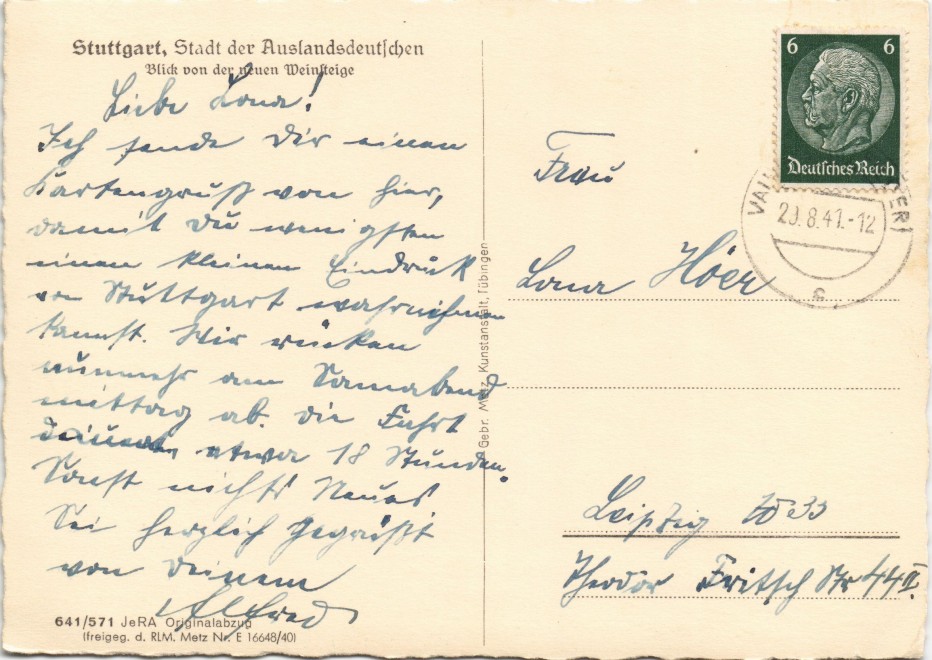 Stuttgart, Stadt der Auslandsdeutschen
Blick von der neuen Weinsteige
Liebe Lona!
Ich sende Dir einen
Kartengruß von hier,
damit Du wenigsten
einen kleinen Eindruck
von Stuttgart wahrnehmen
kannst. Wir rücken
nunmehr am Sonnabend
mittag ab. die Fahrt
dauert etwa 18 Stunden.
Sonst nichts Neues
Sei herzlich gegrüßt
von Deinem
Alfred
641/571 JeRA Originalabzug
(freigeg. d. RLM, Metz Nr. E 16648/40)
Gebr. Metz, Kunstanstalt, Tübingen
6 6
Deutsches Reich
20.8.41.-12
c
Frau
Lona Höer
Leipzig W 33
Theodor Fritsch Str 44 II.